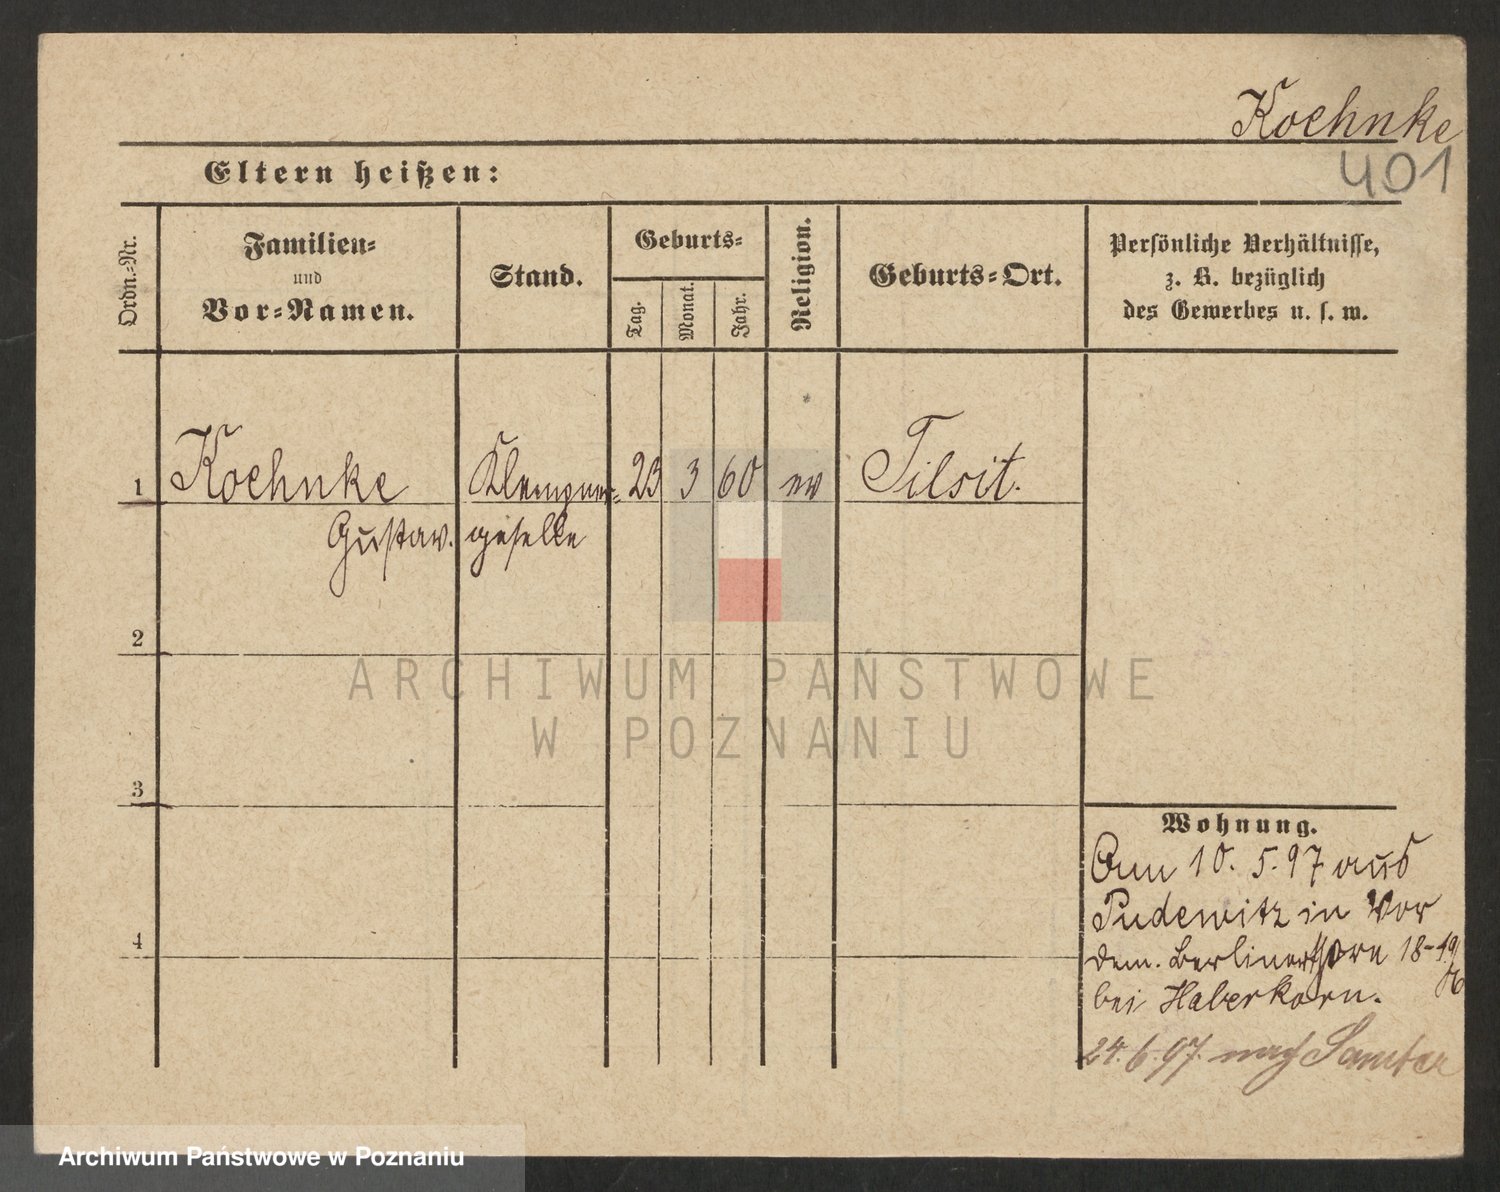 Koehnke
401
Eltern heißen:
Ordn.-Nr.
Familien-
und
Vor-Namen.
Stand.
Geburts-
Tag.
Monat.
Jahr.
Religion.
Geburts-Ort.
Persönliche Verhältnisse,
z. B. bezüglich
des Gewerbes u. s. w.
1 Koehnke Klempner- 23 3 60 ev Tilsit.
Gustav. geselle
2
3
4
Wohnung.
Am 10. 5. 97 aus
Pudewitz in Vor
dem. Berlinerthore 18-19
bei Haberkorn.
24. 6. 97. nach Samter
ARCHIWUM PAŃSTWOWE
W POZNANIU
Archiwum Państwowe w Poznaniu